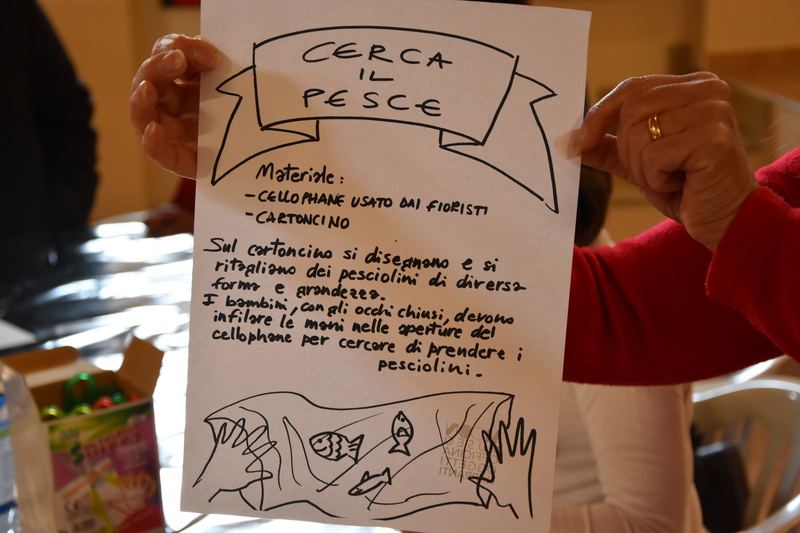 CERCA
IL
PESCE
Materiale:
- CELLOPHANE USATO DAI FIORISTI
- CARTONCINO
Sul cartoncino si disegnano e si
ritagliano dei pesciolini di diversa
forma e grandezza.
I bambini, con gli occhi chiusi, devono
infilare le mani nelle aperture del
cellophane per cercare di prendere i
pesciolini.